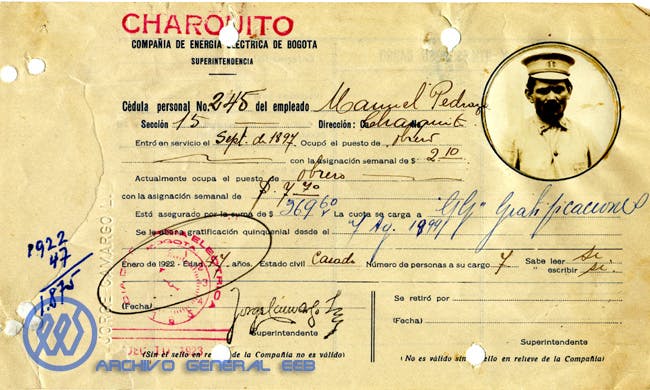 CHARQUITO
COMPAÑIA DE ENERGIA ELECTRICA DE BOGOTA
SUPERINTENDENCIA
Cédula personal No. 245 del empleado Manuel Pedraza
Sección 15 Dirección: Charquito
Entró en servicio el Sept. de 1897 Ocupó el puesto de obrero
con la asignación semanal de $ 2.10
Actualmente ocupa el puesto de obrero
con la asignación semanal de $. 7.70
Está asegurado por la suma de $ 369.60 La cuota se carga a "GG" Gratificaciones
Se le abona gratificación quinquenal desde el 7 Ag. 1899
Enero de 1922 - Edad 47 años. Estado civil Casado Número de personas a su cargo 7 Sabe leer si
" escribir si.
1922
47
1.875
JORGE CAMARGO L.
BOGOTA
(Fecha)
Superintendente
Se retiró por
(Fecha)
Superintendente
(Sin el sello en relieve de la Compañía no es válido)
(No es válido sin el sello en relieve de la Compañía)
ARCHIVO GENERAL EEB